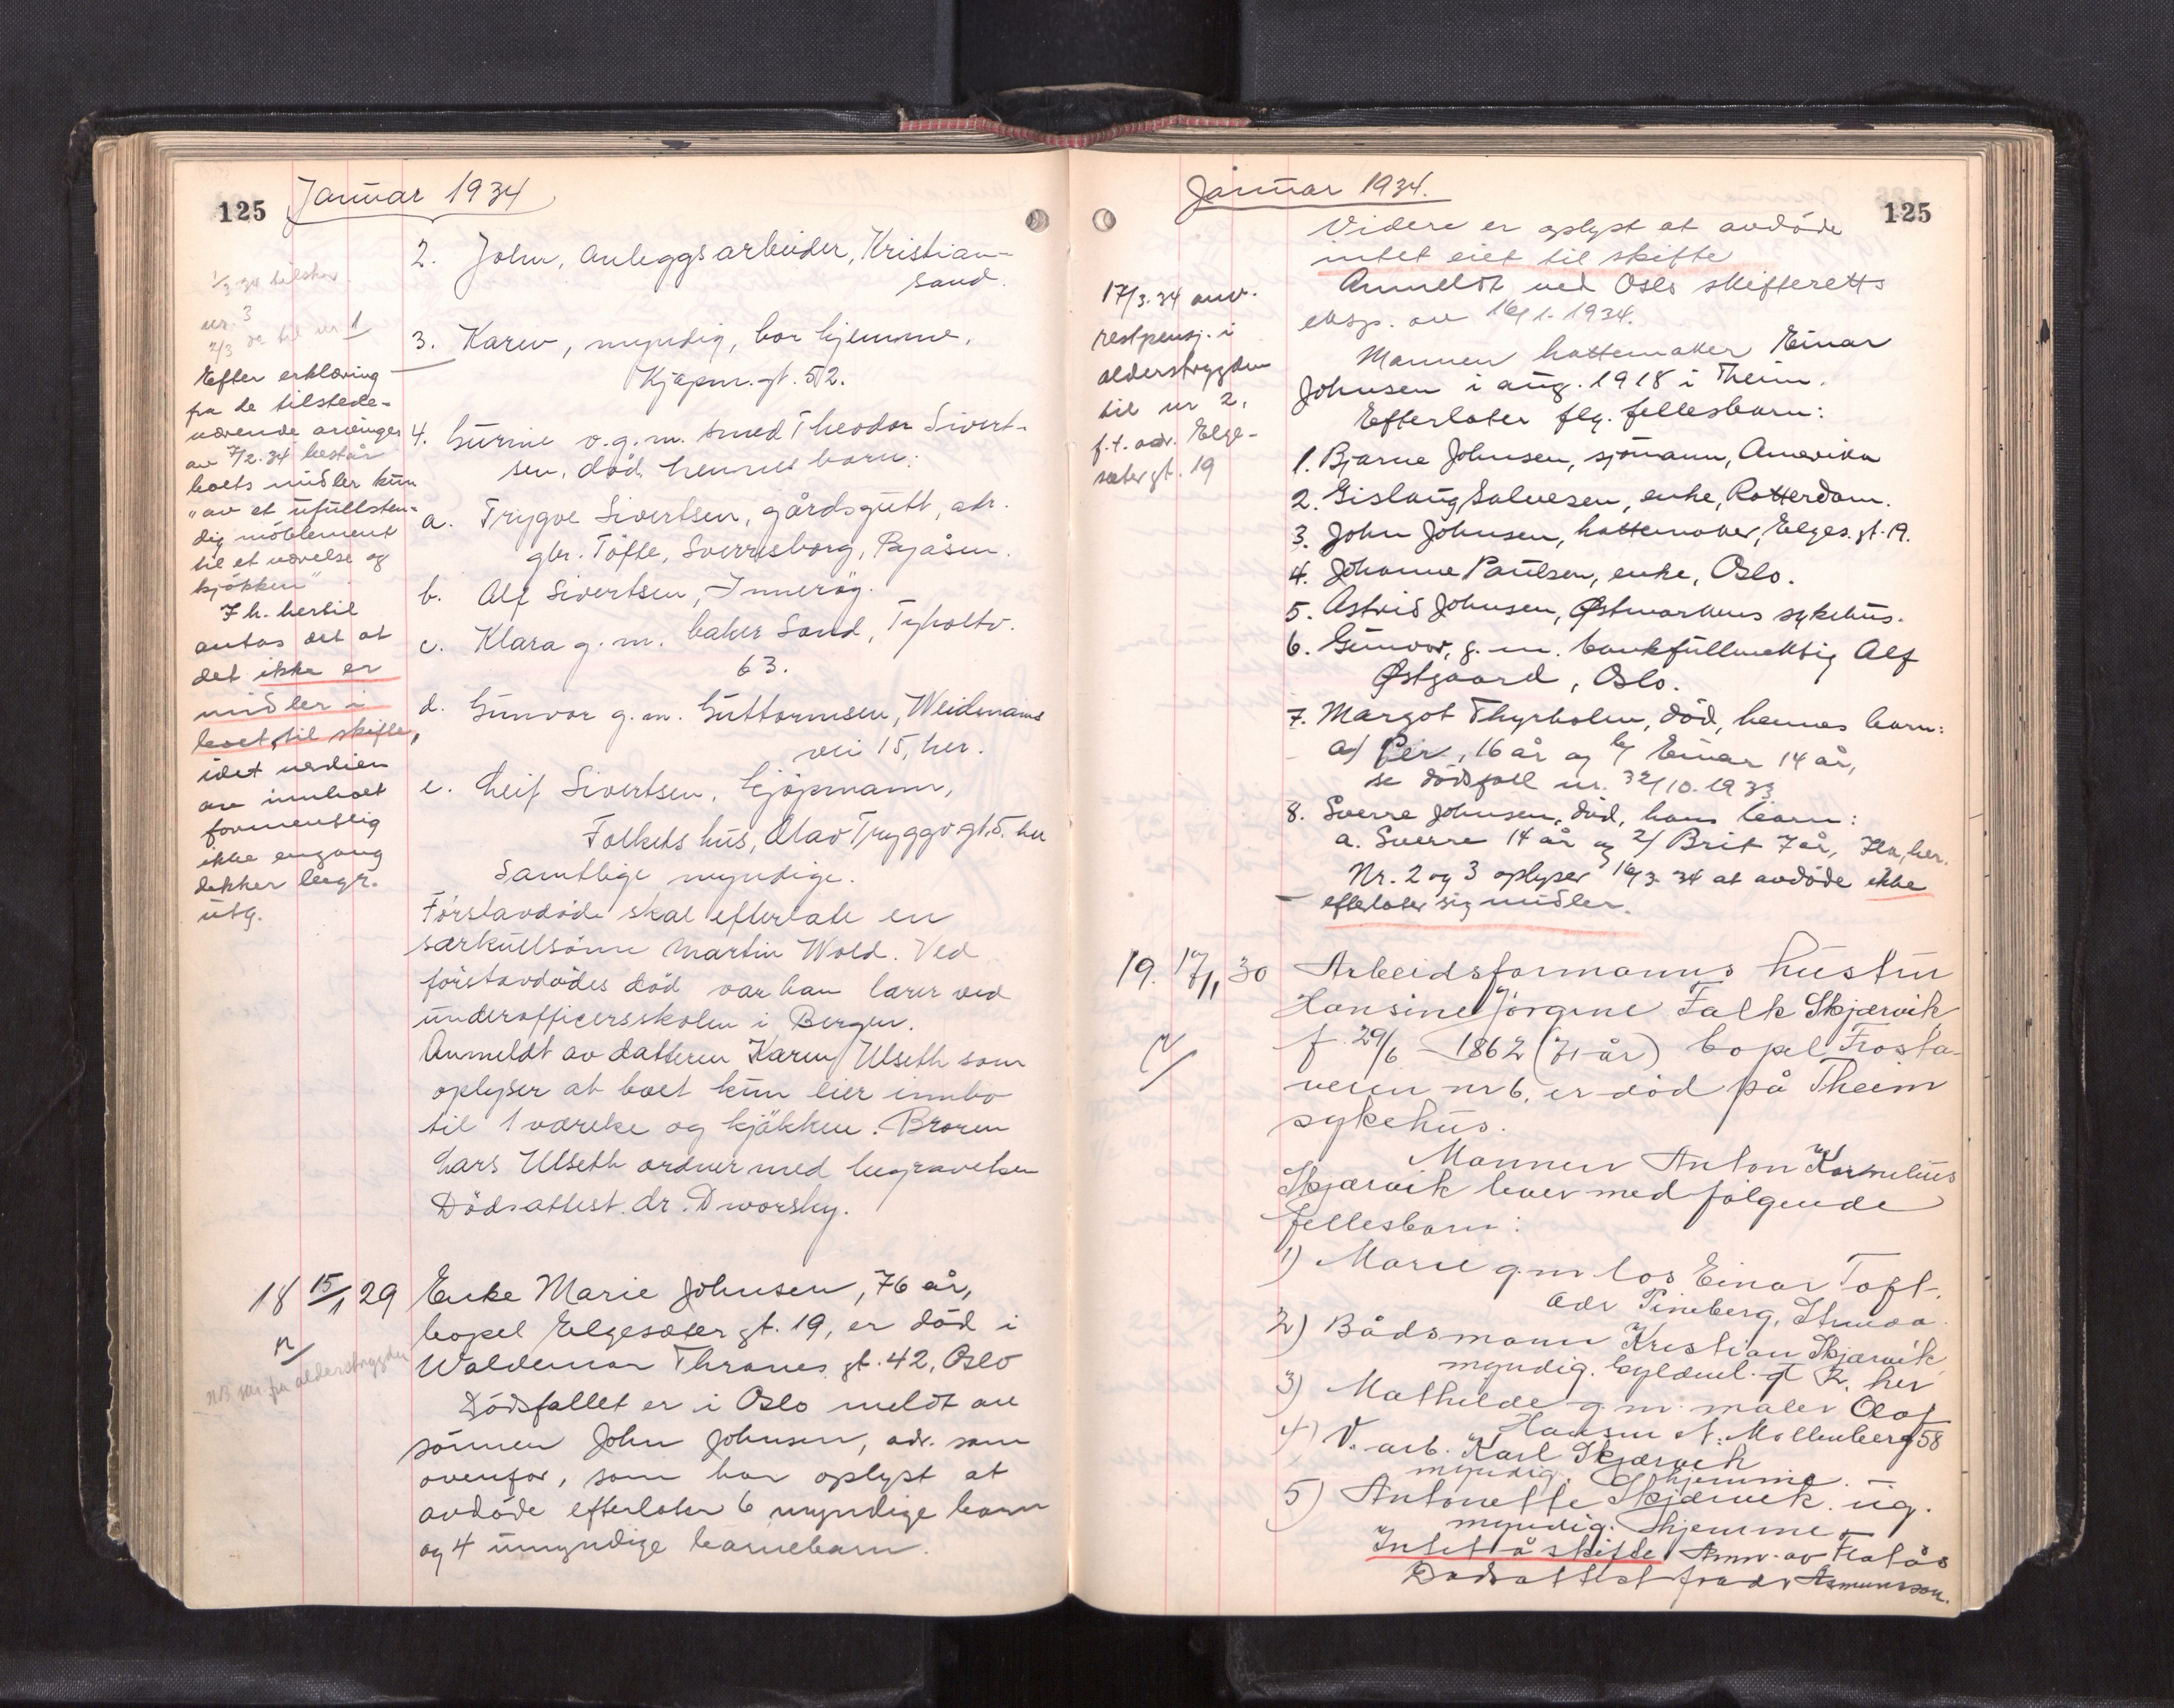 125
Januar 1934
2. John, anleggsarbeider, Kristian-
sand.
3. Karen, myndig, bor hjemme,
Kjøpm.gt. 52.
4. Gurine v.g.m. smed Theodor Sivert-
sen, død, hennes barn:
a. Trygve Sivertsen, gårdsgutt, adr.
gbr. Töfte, Sverresborg, Byåsen.
b. Alf Sivertsen, Inderøy.
c. Klara g.m. baker Sand, Tyholtv.
63.
d. Gunvor g.m. Guttormsen, Weidmanns
vei 15, her.
e. Leif Sivertsen, kjöpmann,
Folkets hus, Olav Tryggv.gt. 5. her
Samtlige myndige.
Förstavdöde skal efterlate en
særkullsönn Martin Wold. Ved
förstavdödes död var han lærer ved
underofficersskolen i Bergen.
Anmeldt av datteren Karen Ulseth som
oplyser at boet kun eier innbo
til 1 værelse og kjökken. Broren
Lars Ulseth ordner med begravelsen
Dödsattest dr. Dworsky.
1/3 34 tilskr.
nr. 3
2/3 do til nr 1
Efter erklæring
fra de tilstede-
værende arvinger
av 7/2.34 består
boets midler kun
"av et ufullsten-
dig möblement
til et værelse og
kjökken"
I h. hertil
antas det at
det ikke er
midler i
boet til skifte,
idet verdien
av innboet
formentlig
ikke engang
dekker begr.
utg.
18 15/1 29 Enke Marie Johnsen, 76 år,
bopel Elgesæter gt. 19, er död i
Waldemar Thranes gt. 42, Oslo
Dödsfallet er i Oslo meldt av
sönnen John Johnsen, adr. som
ovenfor, som har oplyst at
avdöde efterlater 6 myndige barn
og 4 umyndige barnebarn.
NB alderstrygden
125
Januar 1934.
Videre er oplyst at avdöde
intet eiet til skifte
Anmeldt ved Oslo skifteretts
eksp. av 16/1. 1934.
Mannen hattemaker Einar
Johnsen i aug. 1918 i Theim.
Efterlater flg. fellesbarn:
1. Bjarne Johnsen, sjömann, Amerika
2. Gislaug Salvesen, enke, Rotterdam.
3. John Johnsen, hattemaker, Elges.gt. 19.
4. Johanne Paulsen, enke, Oslo.
5. Astrid Johnsen, Østmarkens sykehus.
6. Gunvor, g.m. bankfullmektig Alf
Østgaard, Oslo.
7. Margot Thyrholm, död, hennes barn:
a/ Per, 16 år og b/ Einar 14 år,
se dödsfall nr. 32/10. 1933
8. Sverre Johnsen, död, hans barn:
a. Sverre 14 år og 2/ Brit 7 år, Ila, her.
Nr. 2 og 3 oplyser 16/3 34 at avdöde ikke
efterlater sig midler.
17/3.34 anv.
restpensj. i
alderstrygden
til nr 2,
f.t. adr. Elge-
sæter gt. 19
19. 17/1 30 Arbeidsformanns hustru
Hansine Jörgine Falk Skjærvik
f. 29/6 - 1862 (71 år) bopel Frosta-
veien nr 6, er död på Theim
sykehus.
Mannen Anton Kornelius
Skjærvik lever med fölgende
fellesbarn:
1) Marie g.m los Einar Toft,
adr Pineberg, Strinda.
2) Bådsmann Kristian Skjærvik
myndig. Gyldenl. gt 2, her
3) Mathilde g.m. maler Olaf
Hansen N. Möllenberg 58
4) V. arb. Karl Skjærvik
myndig. Hjemme.
5) Antonette Skjærvik. ug.
myndig. Hjemme.
Intet å skifte. Anm. av Flatås
Dödsattest fra dr Asmundsson.